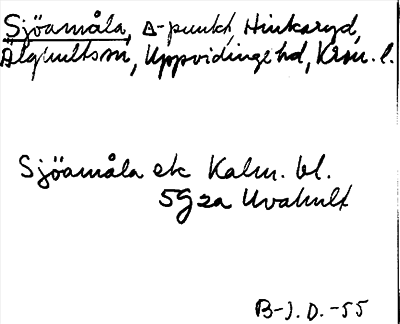 Sjöamåla, Δ-punkt, Hinkaryd,
Älghultssn, Uppvidinge hd, Kron. l.
Sjöamåla ek Kalm. bl.
5G 2a Uvahult
B-J. D. -55